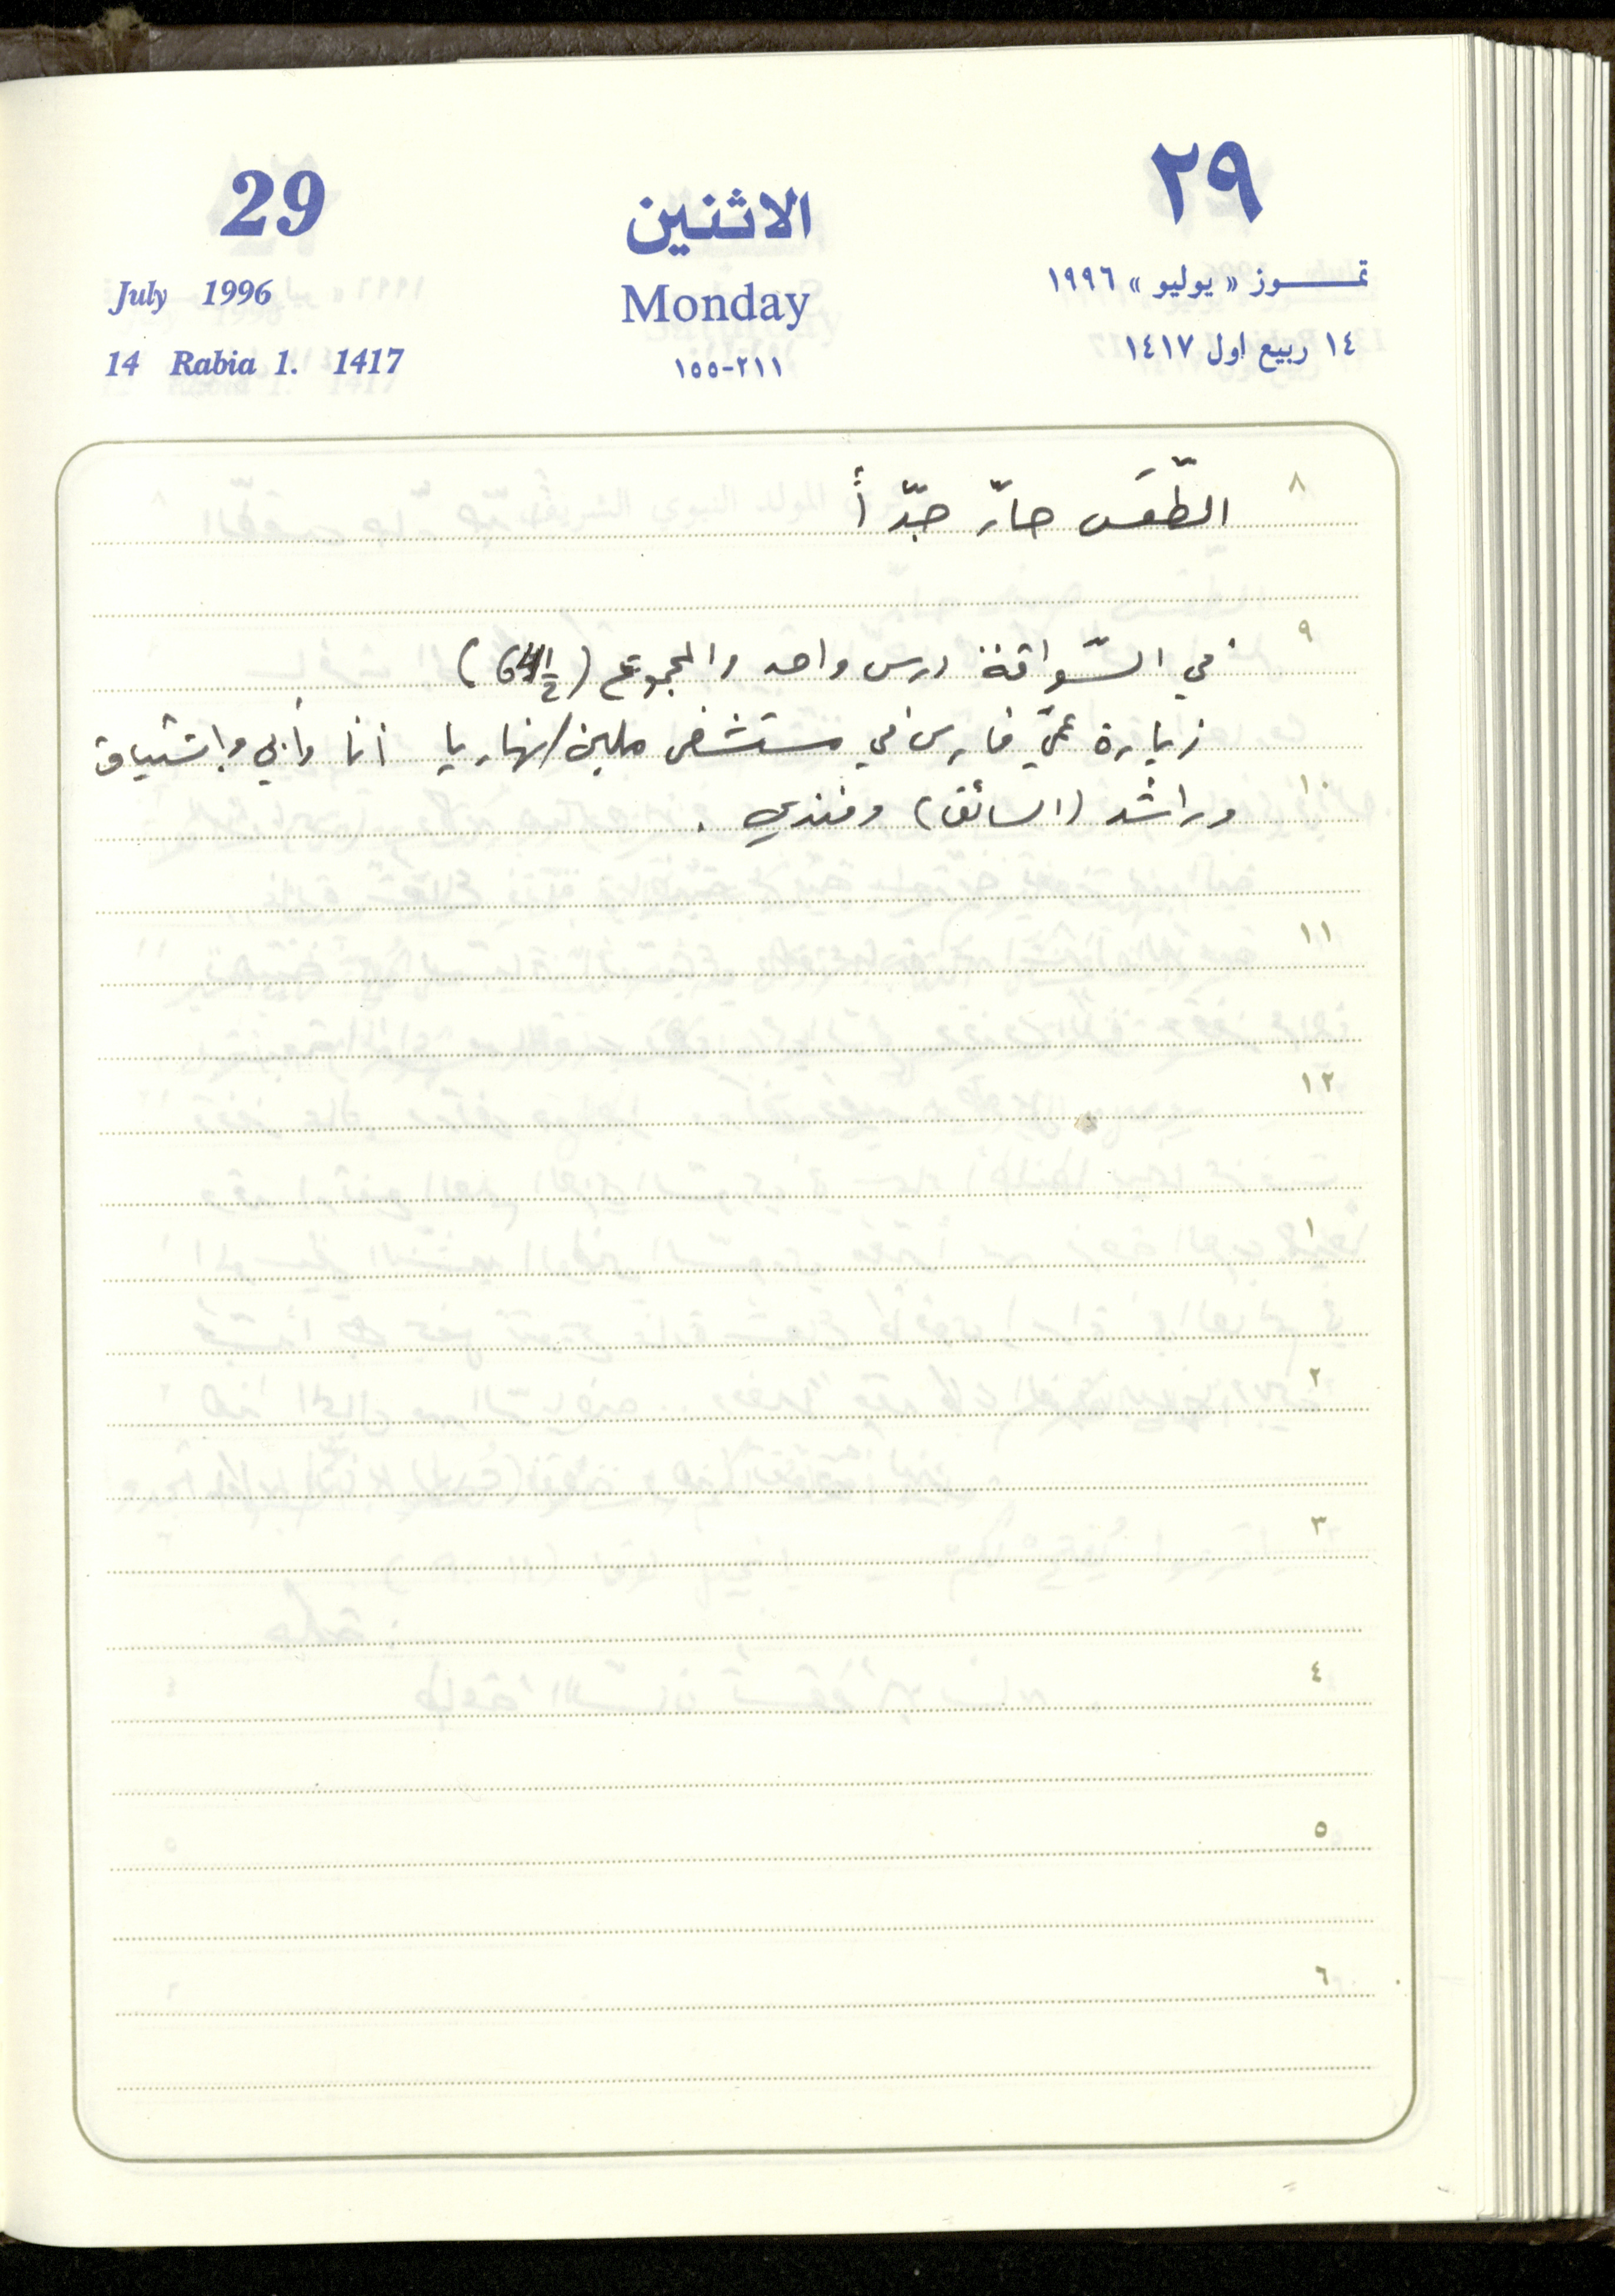 29 الاثنين ٢٩
July 1996 Monday تمـــوز « يوليو » ١٩٩٦
14 Rabia 1. 1417 ٢١١-١٥٥ ١٤ ربيع اول ١٤١٧
٨ الطّقس حارّ جدّاً
٩ في السّواقة درس واحد والمجموع
زيارة عمّي فارس في مستشفى نهاريا أنا وأبي واشتياق
١٠ وراشد (السائق) وفندي .
١١
١٢
١
٢
٣
٤
٥
٦